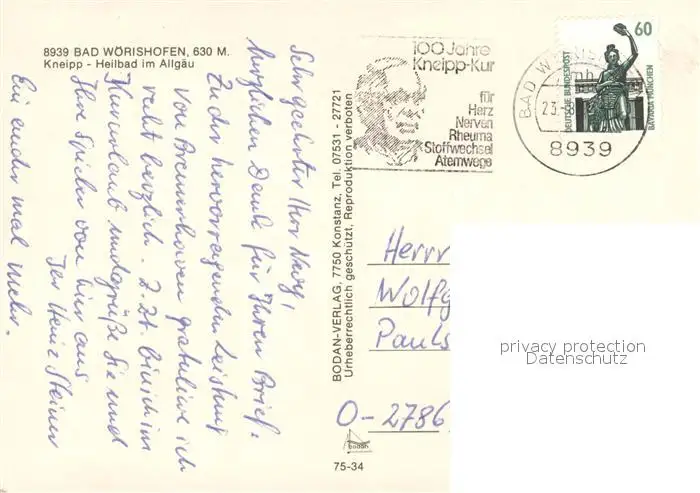 8939 BAD WÖRISHOFEN, 630 M.
Kneipp - Heilbad im Allgäu
Sehr geehrter Herr
herzlichen Dank für Ihren Brief.
Zu der hervorragenden Leistung
von Bremerhaven gratuliere ich
recht herzlich. Z. Zt. bin ich im
Kururlaub und grüße Sie und
Ihre Spieler von hier aus
Ihr Heinz Steiner
Ein ander mal mehr.
BODAN-VERLAG, 7750 Konstanz, Tel. 07531 - 27721
Urheberrechtlich geschützt, Reproduktion verboten
100 Jahre
Kneipp-Kur
für
Herz
Nerven
Rheuma
Stoffwechsel
Atemwege
BAD
23.
8939
60
DEUTSCHE BUNDESPOST
BAVARIA MÜNCHEN
Herrn
Wolfg
Pauls
O-2786
bodan
75-34
privacy protection
Datenschutz